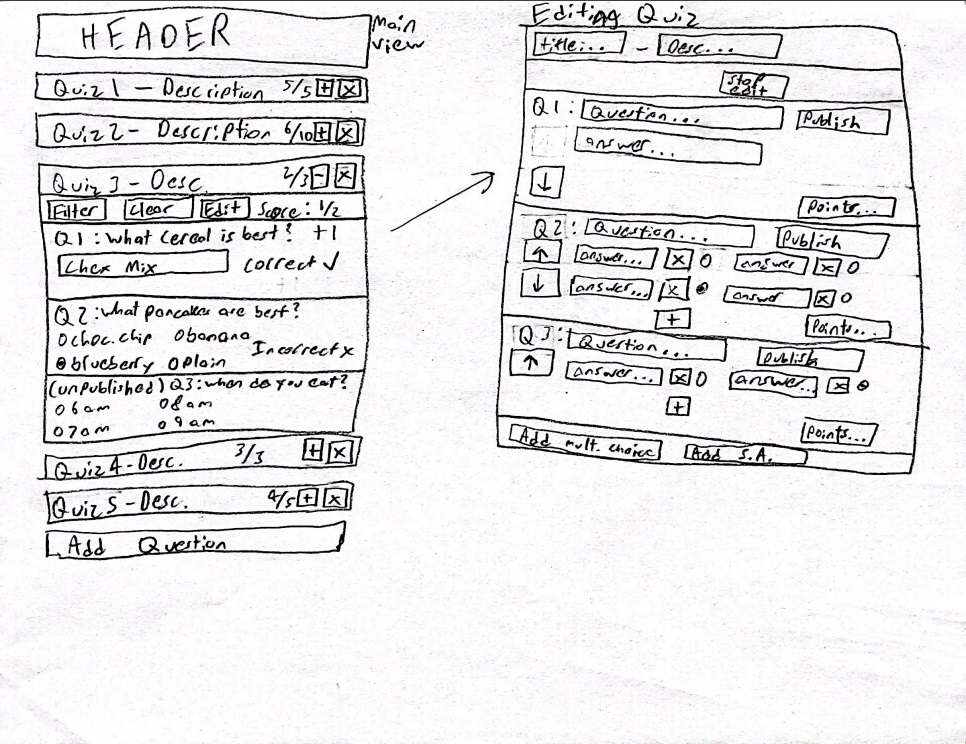 HEADER
Main
view
Quiz 1 - Description 5/5 + x
Quiz 2 - Description 6/10 + x
Quiz 3 - Desc. 2/3 - x
Filter Clear Edit Score: 1/2
Q1: What cereal is best? +1
Chex Mix correct ✓
Q2: What pancakes are best?
O choc. chip O banana
Incorrect x
blueberry O Plain
(unpublished) Q3: when do you eat?
O 6am O 8am
O 7am O 9am
Quiz 4 - Desc. 3/3 + x
Quiz 5 - Desc. 4/5 + x
Add Question
Editing Quiz
title:... - Desc...
stop
edit
Q1: Question... Publish
answer...
↓
Points...
Q2: Question... Publish
↑ answer... x O answer x O
↓ answer... x answer x O
+
Points...
Q3: Question... Publish
↑ answer... x O answer... x
+
Points...
Add mult. choice Add S.A.